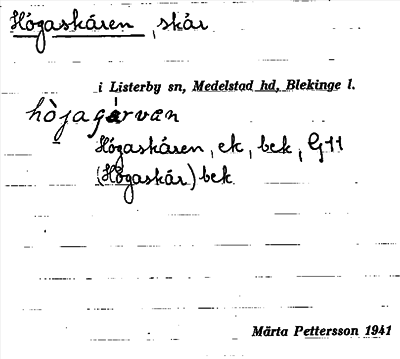 Högaskären, skär
i Listerby sn, Medelstad hd, Blekinge l.
Högaskären, ek, bek, G11
(Högaskär) bek
Märta Pettersson 1941